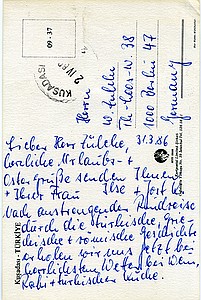 09 - 37
KUSADASI
Herrn
W. Fulche
Th.-Heuss-W. 38
1000 Berlin 47
Germany
31.3.86
Lieber Herr Fulche,
herzliche Urlaubs- +
Ostergrüße senden Ihnen
+ Ihrer Frau Ilse + Jost K.
Nach anstrengender Rundreise
durch die türkische, grie-
chische + römische Geschichte
erholen wir uns jetzt bei
herrlichstem Wetter bei Wein,
Raki + türkischer Küche.
Kuşadası - TÜRKİYE